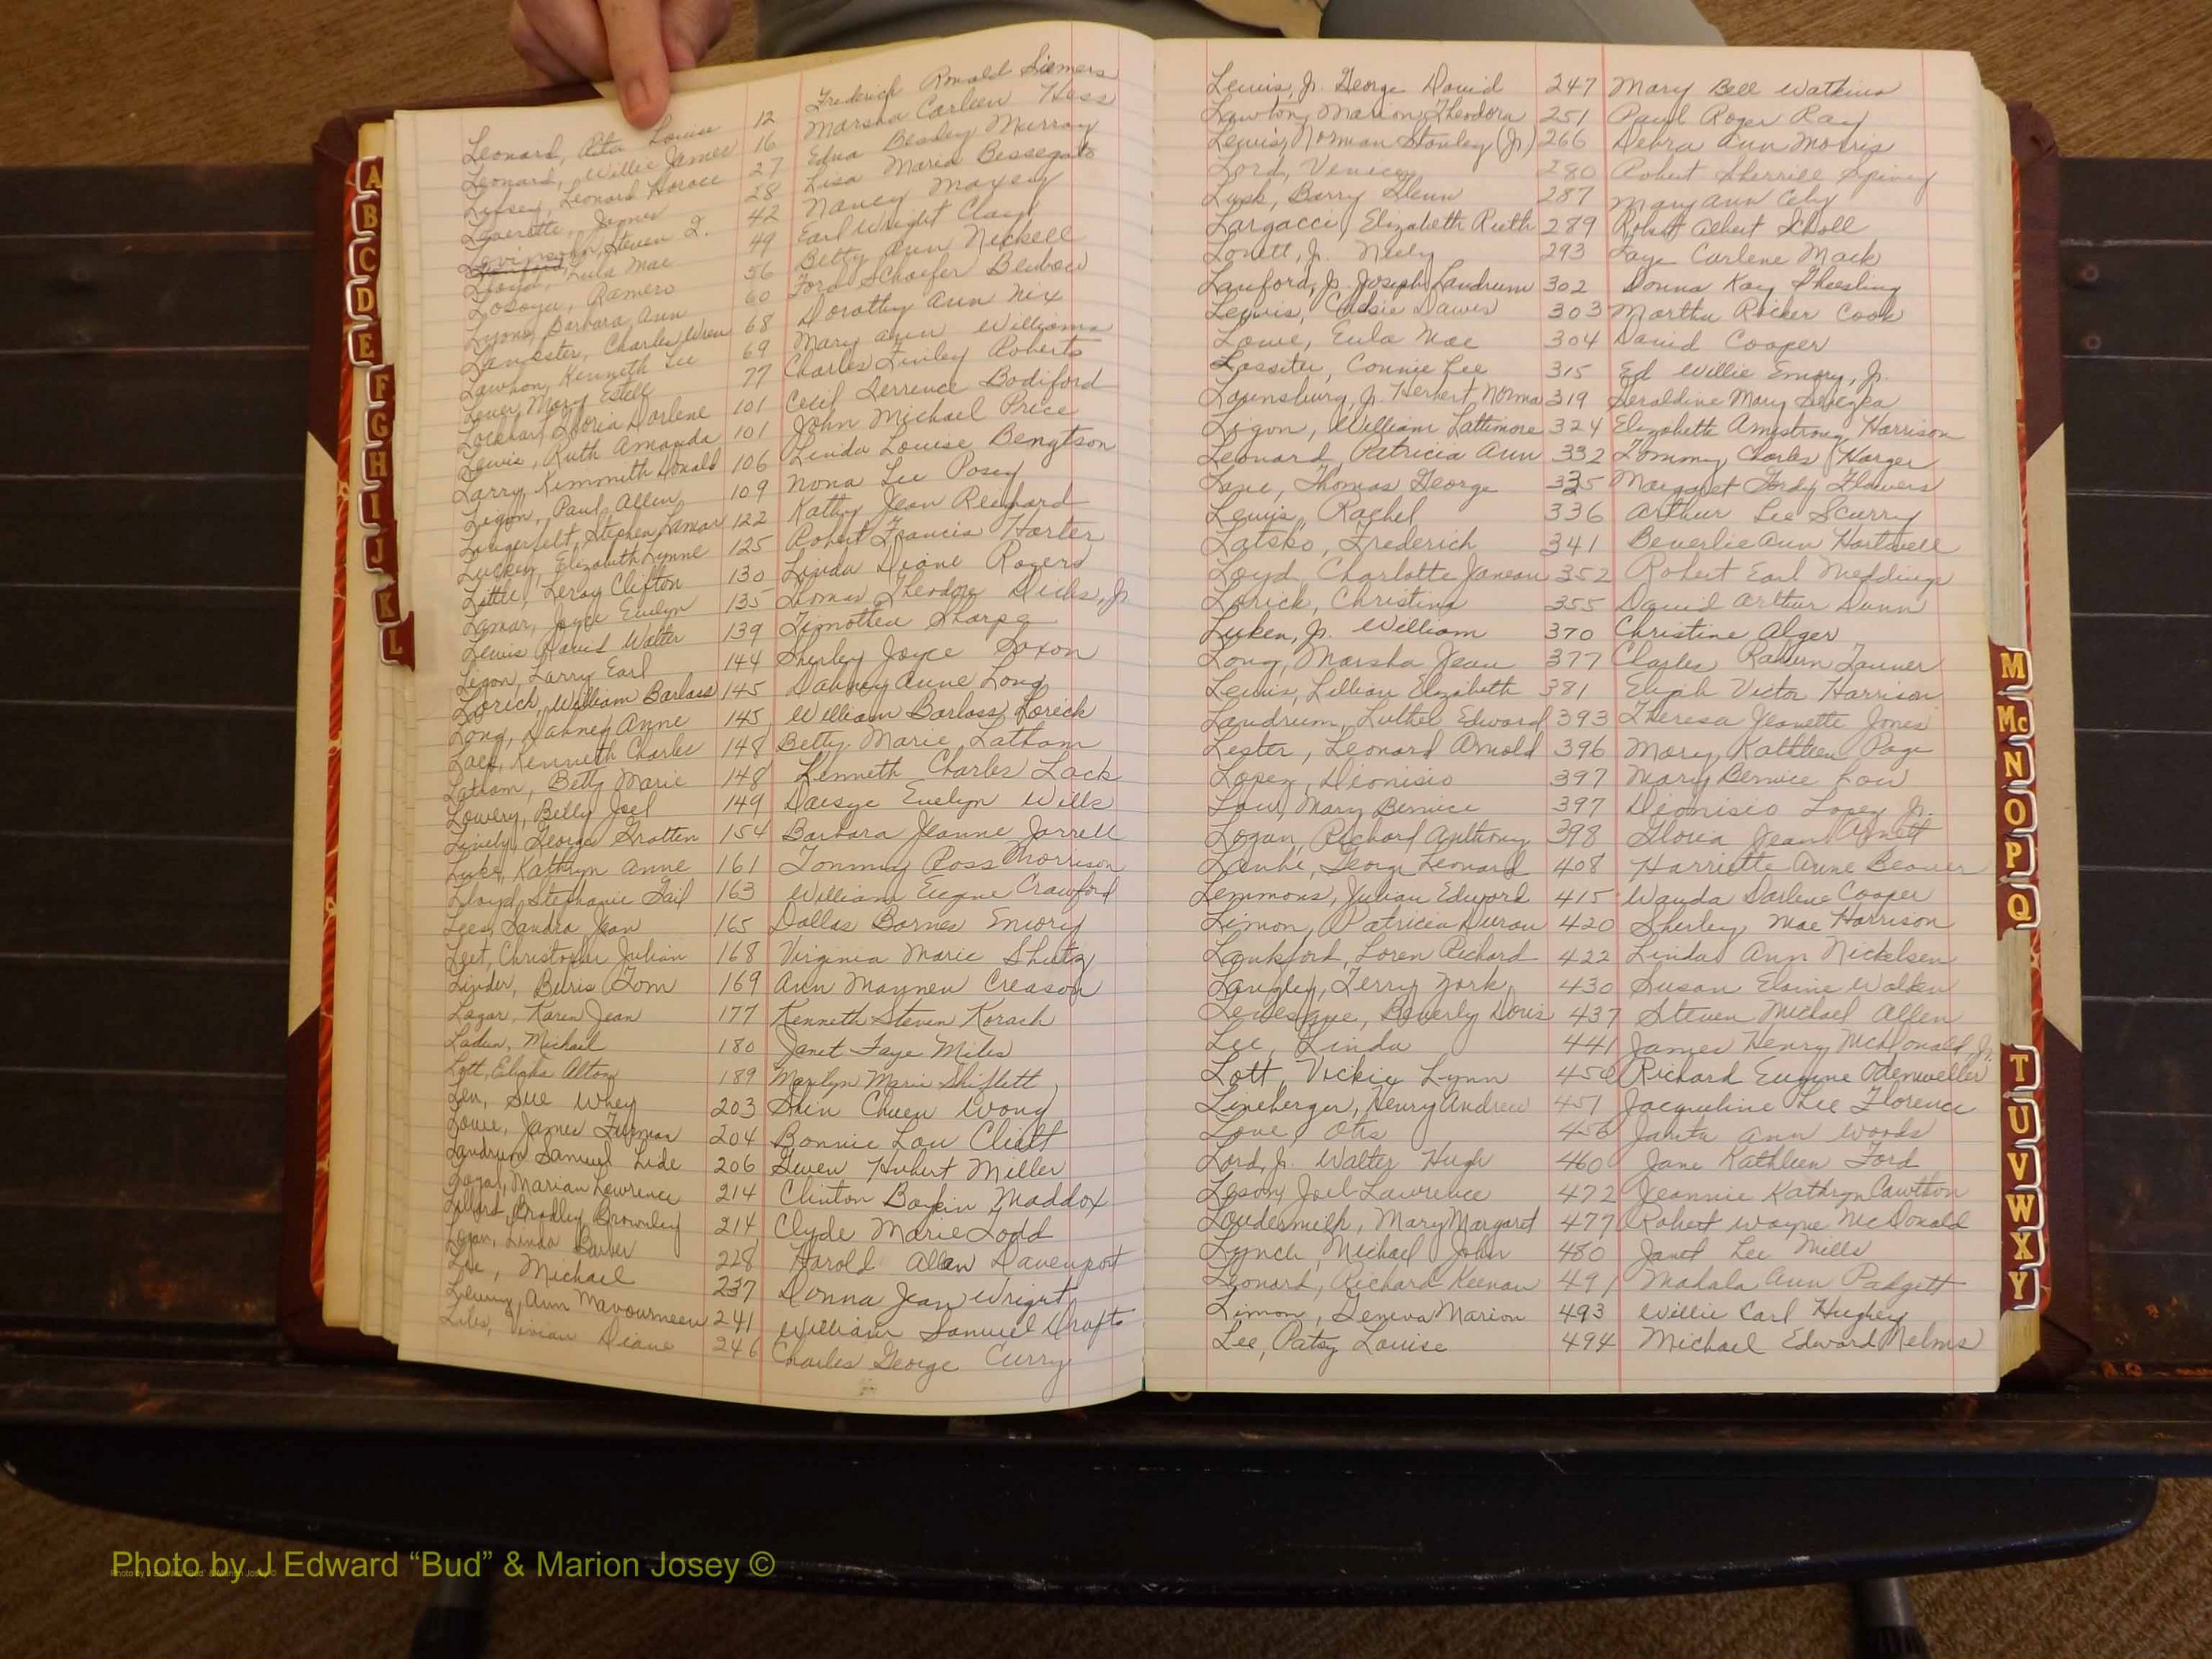 Leonard, Rita Louise 12 Frederich Ronald Siemers
Leonard, Willie James 16 Marsha Carleen Hess
Livsey, Leonard Horace 27 Edna Beasley Murray
Laverette, James 28 Lisa Maria Bessegato
Levinsohn, Steven I. 42 Nancy Maxey
Lloyd, Lula Mae 49 Earl Wright Clay
Losoya, Ramero 56 Betty Ann Nickell
Lyons, Barbara Ann 60 Ford Schaefer Benbow
Lancaster, Charles Wren 68 Dorothy Ann Nix
Lawhon, Kenneth Lee 69 Mary Ann Williams
Lever, Mary Estell 77 Charles Finley Roberts
Lockhart, Gloria Darlene 101 Cecil Derrence Bodiford
Lewis, Ruth Amanda 101 John Michael Price
Larry, Kemmeth Donald 106 Linda Louise Bengtson
Ligon, Paul Allen 109 Nona Lee Posey
Laugerfelt, Stephen Lamar 122 Kathy Jean Reichard
Luckey, Elizabeth Lynne 125 Robert Francis Harter
Little, Leroy Clifton 130 Linda Diane Rogers
Lamar, Joyce Evelyn 135 Thomas Theodore Dicks, Jr
Lewis, David Walter 139 Timothea Sharpe
Ligon, Larry Earl 144 Shirley Joyce Saxon
Lorick, William Barlass 145 Dahney Anne Long
Long, Dahney Anne 145 William Barlass Lorick
Lack, Kenneth Charles 148 Betty Marie Latham
Latham, Betty Marie 148 Kenneth Charles Lack
Lowery, Billy Joel 149 Daisye Evelyn Wills
Lively, George Gratten 154 Barbara Jeanne Jarrell
Luke, Kathryn Anne 161 Tommy Ross Morrison
Lloyd, Stephanie Gail 163 William Eugene Crawford
Lees, Sandra Jean 165 Dallas Barnes Emory
Leet, Christopher Julian 168 Virginia Marie Shutz
Linder, Buris Tom 169 Ann Maynew Creason
Lazar, Karen Jean 177 Kenneth Steven Korach
Laden, Michael 180 Janet Faye Miles
Lott, Elisha Alton 189 Marilyn Marie Shiflett
Leu, Sue Whey 203 Shin Chuen Wong
Lowe, James Furman 204 Bonnie Lou Cliatt
Landrum, Samuel Lide 206 Gwen Hubert Miller
Marian Lawrence 214 Clinton Boykin Maddox
Lillard, Bradley Brownley 214 Clyde Marie Todd
Logan, Linda Barber 228 Harold Allan Davenport
Lee, Michael 237 Donna Jean Wright
Lewis, Ann Mavourneen 241 William Samuel Drafts
Liles, Vivian Diane 246 Charles George Curry
Lewis, Jr. George David 247 Mary Bell Watkins
Lawton, Marion Theodora 251 Paul Roger Ray
Lewis, Norman Stanley (Jr) 266 Debra Ann Morris
Lord, Venice 280 Robert Sherrill Spivey
Lusk, Barry Glenn 287 Mary Ann Eby
Largacci, Elizabeth Ruth 289 Robert Albert Scholl
Lovett, Jr. Neely 293 Faye Carlene Mack
Lanford, Jr. Joseph Landrum 302 Donna Kay Gheesling
Lewis, Davis 303 Martha Rucker Cook
Lowe, Eula Mae 304 David Cooper
Lassiter, Connie Lee 315 Ed Willie Emory, Jr.
Lounsbury, Jr. Herbert Norma 319 Geraldine Mary
Ligon, William Lattimore 324 Elizabeth Armstrong Harrison
Leonard, Patricia Ann 332 Tommy Charles Harger
Lane, Thomas George 335 Margaret Flowers
Lewis, Rachel 336 Arthur Lee Scurry
Latsko, Frederich 341 Beverlie Ann Hartwell
Loyd, Charlotte Janeau 352 Robert Earl Meddings
Lorick, Christina 355 David Arthur Dunn
Luken, Jr. William 370 Christine Alger
Long, Marsha Jean 377 Charles Rahurn Tanner
Lewis, Lillian Elizabeth 381 Eliph Victor Harrison
Landrum, Luther Edward 393 Theresa Jeanette Jones
Lester, Leonard Arnold 396 Mary Kathleen Page
Lopez, Dionisio 397 Mary Bernice Low
Low, Mary Bernice 397 Dionisio Lopez Jr.
Logan, Richard Anthony 398 Gloria Jean Arnett
George Leonard 408 Harriette Anne Beaver
Lemmons, Julian Edward 415 Wanda Darlene Cooper
Limon, Patricia Duran 420 Shirley Mae Harrison
Lankford, Loren Richard 422 Linda Ann Nickelsen
Langley, Terry York 430 Susan Elaine Walker
Levesque, Beverly Doris 437 Steven Michael Allen
Lee, Linda 441 James Henry McDonald, Jr.
Lott, Vickie Lynn 450 Richard Eugene Odenweller
Lineberger, Henry Andrew 451 Jacqueline Lee Florence
Love, Otis 456 Janita Ann Woods
Lord, Jr. Walter Hugh 460 Jane Kathleen Ford
Leson, Joel Lawrence 472 Jeannie Kathryn Cawthon
Loudermilk, Mary Margaret 477 Robert Wayne McDonald
Lynch, Michael John 480 Janet Lee Mills
Leonard, Richard Keenan 491 Mahala Ann Padgett
Limon, Geneva Marion 493 Willie Carl Hughey
Lee, Patsy Louise 494 Michael Edward Nelms
A
B
C
D
E
F
G
H
I
J
K
L
M
Mc
N
O
P
Q
T
U
V
W
X
Y
Photo by J Edward “Bud” & Marion Josey ©